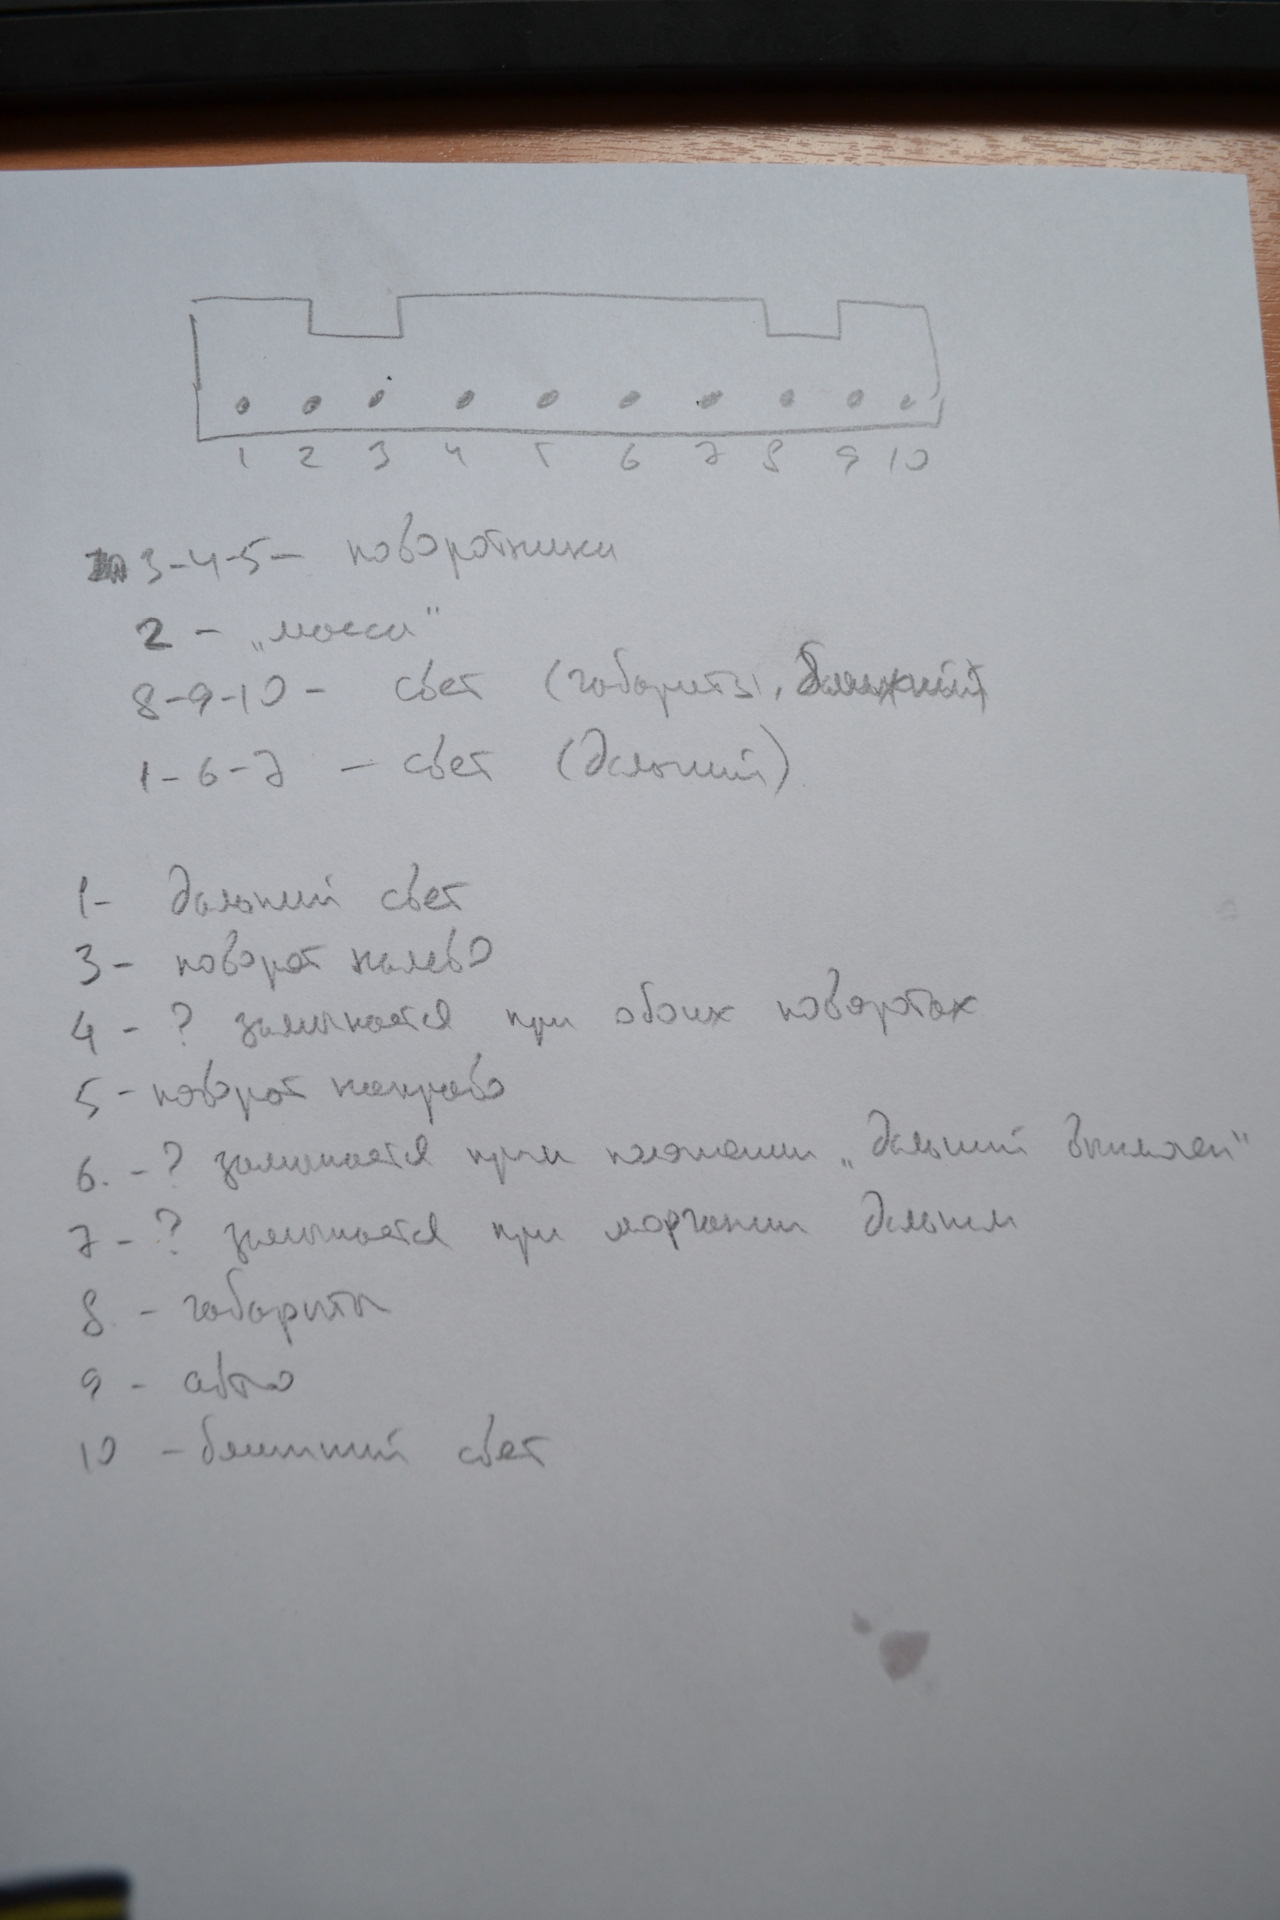 1 2 3 4 5 6 7 8 9 10
3-4-5- поворотники
2 - „масса"
8-9-10- свет (габариты, ближний)
1-6-7 - свет (дальний)
1- дальний свет
3- поворот налево
4 - ? замыкается при обоих поворотах
5 - поворот направо
6. - ? замыкается при положении „дальний включен"
7 - ? замыкается при моргании дальним
8 - габариты
9 - авто
10 - ближний свет